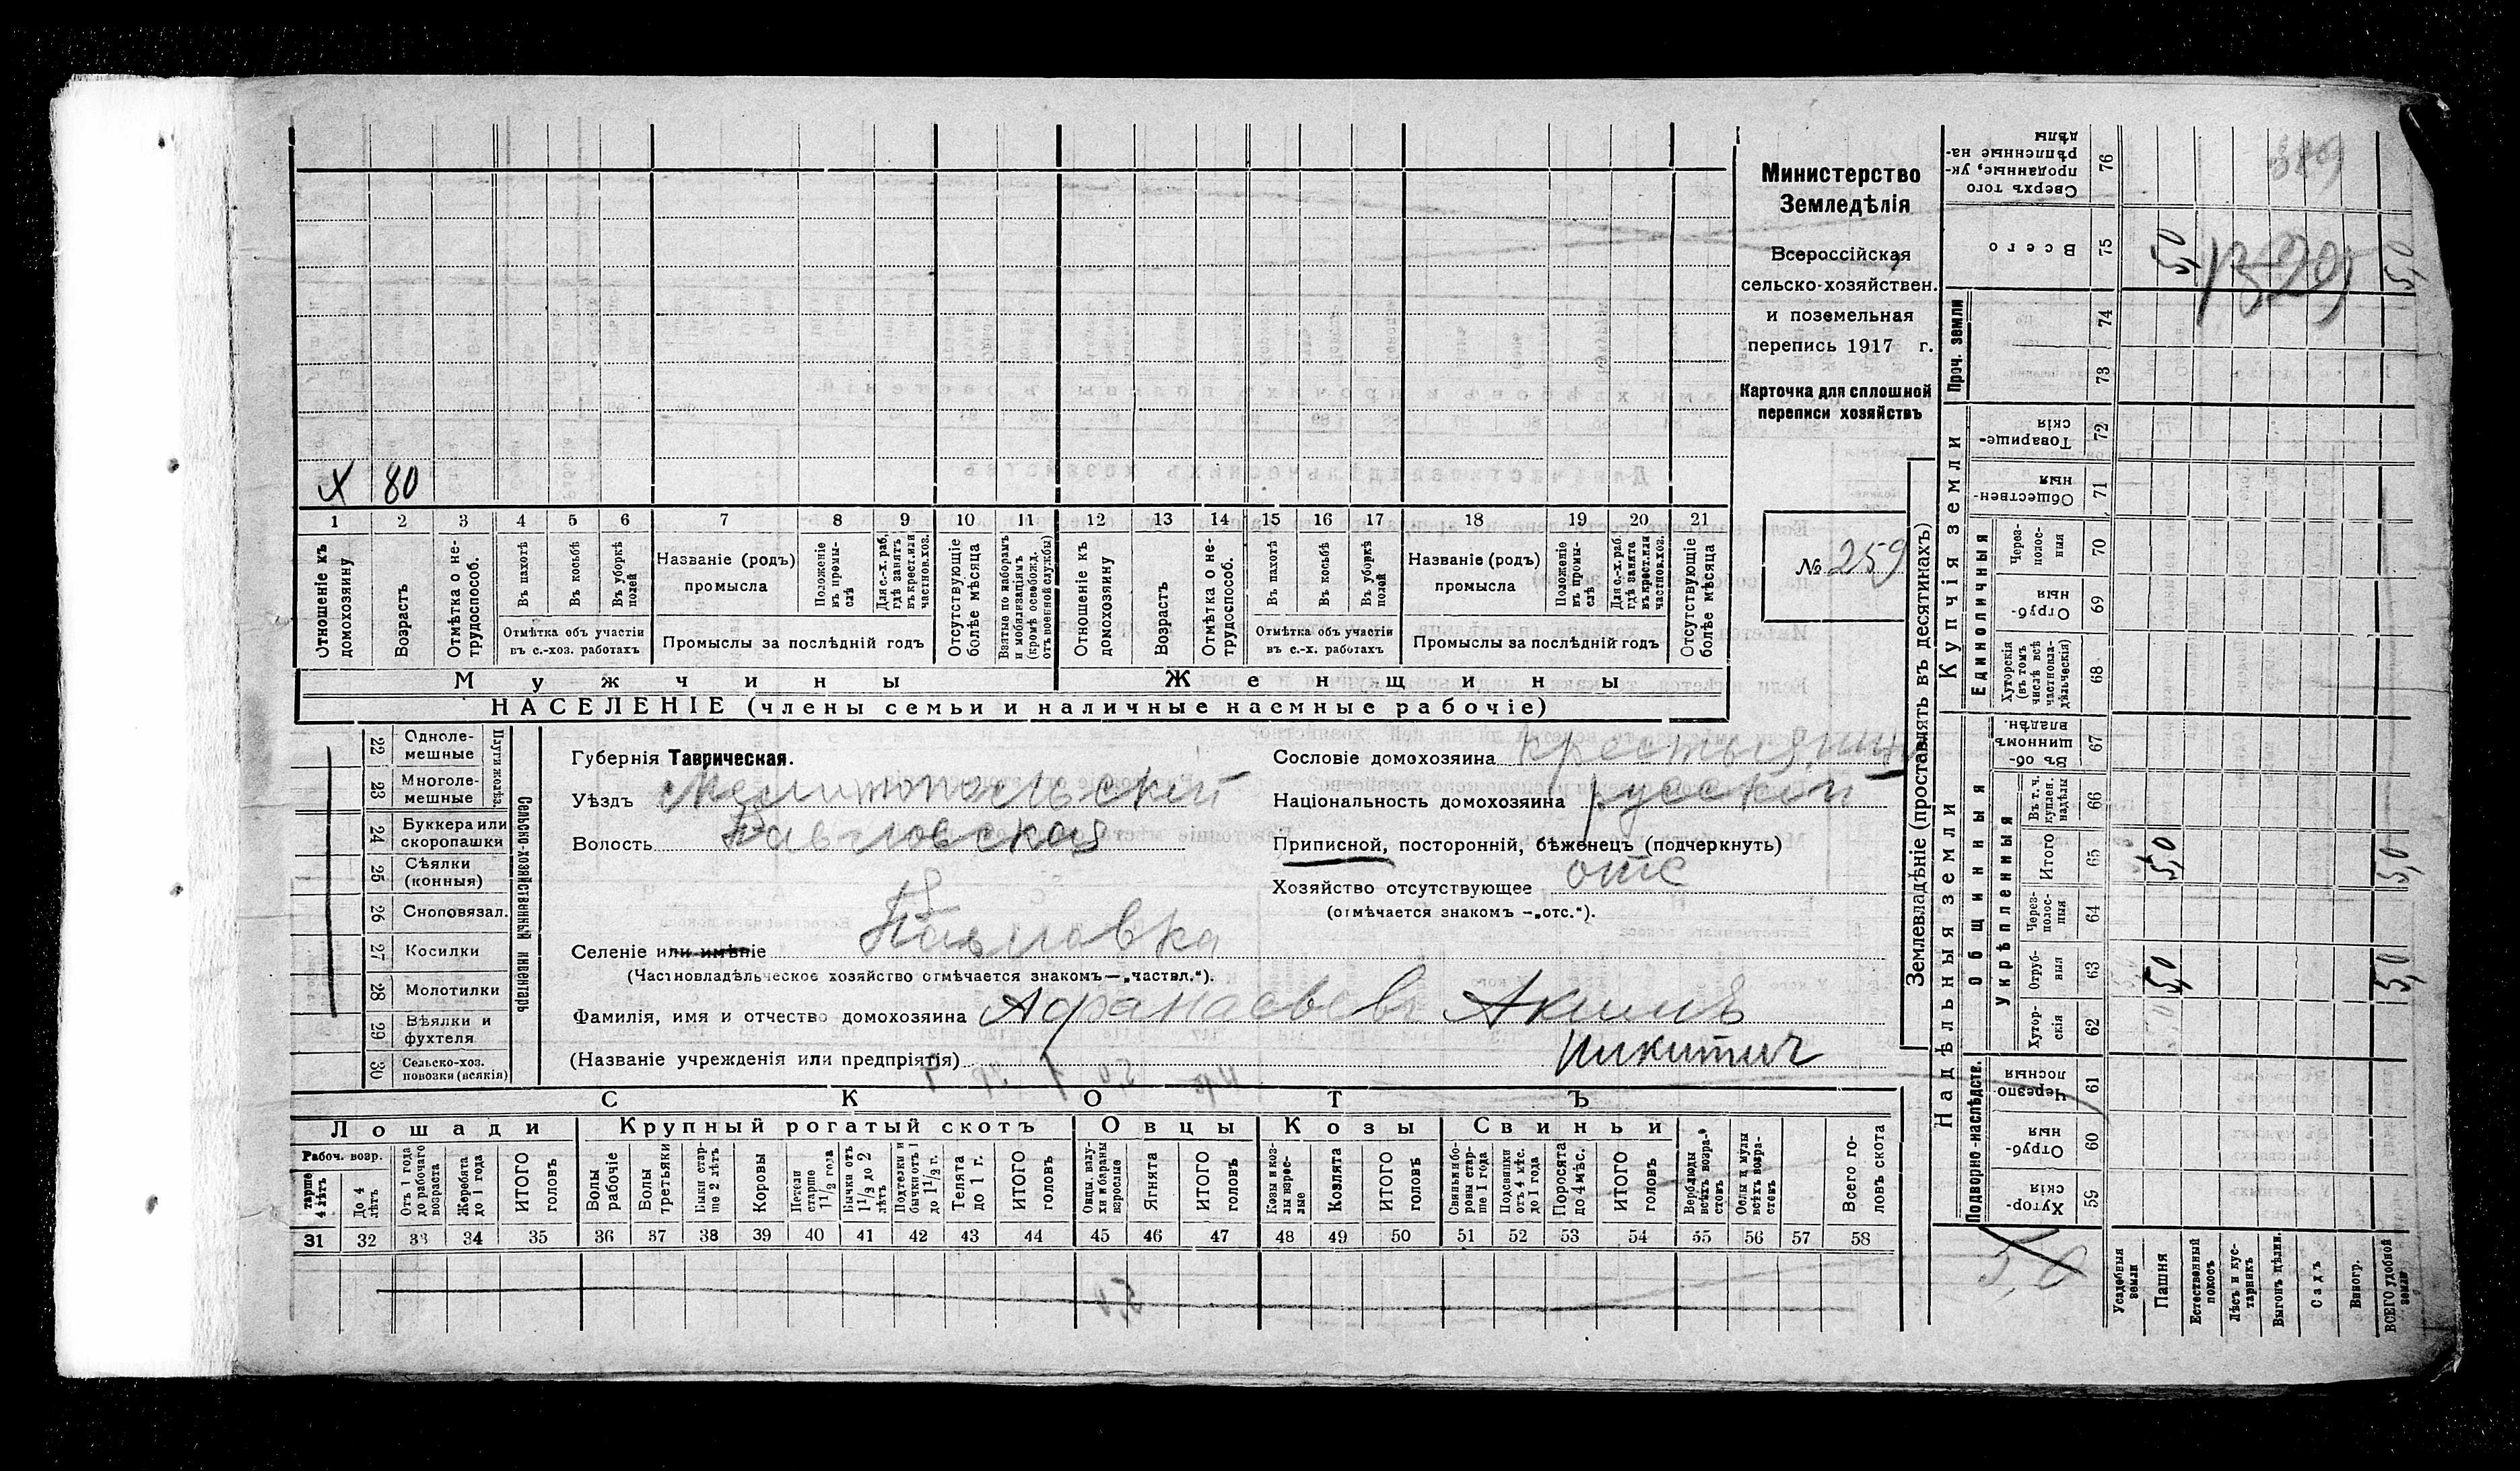 Министерство
Земледѣлія
Всероссійская
сельско-хозяйствен.
и поземельная
перепись 1917 г.
Карточка для сплошной
переписи хозяйствъ
№ 259
X 80
1 2 3 4 5 6 7 8 9 10 11 12 13 14 15 16 17 18 19 20 21
Отношеніе къ домохозяину
Возрастъ
Отмѣтка о нетрудоспособ.
Въ пахотѣ
Въ косьбѣ
Въ уборкѣ полей
Отмѣтка объ участіи
въ с.-хоз. работахъ
Названіе (родъ)
промысла
Положеніе въ промыслѣ
Для с.-х. раб. гдѣ занятъ въ крест. или частнов. хоз.
Промыслы за послѣдній годъ
Отсутствующіе болѣе мѣсяца
Взятые по наборамъ и мобилизаціямъ (кромѣ освобожд. отъ военной службы)
Отношеніе къ домохозяину
Возрастъ
Отмѣтка о нетрудоспособ.
Въ пахотѣ
Въ косьбѣ
Въ уборкѣ полей
Отмѣтка объ участіи
въ с.-х. работахъ
Названіе (родъ)
промысла
Положеніе въ промыслѣ
Для с.-х. раб. гдѣ занята въ крест. или частнов. хоз.
Промыслы за послѣдній годъ
Отсутствующіе болѣе мѣсяца
Мужчины Женщины
НАСЕЛЕНІЕ (члены семьи и наличные наемные рабочіе)
22 Однолемешные
23 Многолемешные
Плуги желѣз.
24 Буккера или скоропашки
25 Сѣялки (конныя)
26 Сноповязал.
27 Косилки
28 Молотилки
29 Вѣялки и фухтеля
30 Сельско-хоз. повозки (всякія)
Сельско-хозяйственный инвентарь
Губернія Таврическая.
Уѣздъ Мелитопольскій
Волость Павловская
Селеніе или имѣніе Павловка
(Частновладѣльческое хозяйство отмѣчается знакомъ—„частвл.“).
Сословіе домохозяина крестьянин
Національность домохозяина русскій
Приписной, посторонній, бѣженецъ (подчеркнуть)
Хозяйство отсутствующее отс
(отмѣчается знакомъ —„отс.“).
Фамилія, имя и отчество домохозяина Афанасьевъ Акимъ
Никитич
(Названіе учрежденія или предпріятія)
СКОТЪ
Лошади Крупный рогатый скотъ Овцы Козы Свиньи
Рабоч. возр.
тарше 4 лѣтъ
До 4 лѣтъ
Отъ 1 года до рабочаго возраста
Жеребята до 1 года
ИТОГО головъ
Волы рабочіе
Волы третьяки
Быки старше 2 лѣтъ
Коровы
Нетели старше 1 1/2 года
Бычки отъ 1 1/2 до 2 лѣтъ
Подтелки и бычки отъ 1 до 1 1/2 г.
Телята до 1 г.
ИТОГО головъ
Овцы, валухи и бараны взрослые
Ягнята
ИТОГО головъ
Козы и козлы взрослые
Козлята
ИТОГО головъ
Свиньи боровы старше 1 года
Подсвинки отъ 4 мѣс. до 1 года
Поросята до 4 мѣс.
ИТОГО головъ
Верблюды всѣхъ возрастовъ
Ослы и мулы всѣхъ возрастовъ
Всего головъ скота
31 32 33 34 35 36 37 38 39 40 41 42 43 44 45 46 47 48 49 50 51 52 53 54 55 56 57 58
Землевладѣніе (проставлять въ десятинахъ)
Надѣльныя земли
Купчія земли
Проч. земли
Сверхъ того проданные, укрѣпленные надѣлы 76
Всего 75 5,0 5,0
74
73
Товарищескія 72
Общественныя 71
Единоличныя
Черезполосныя 70
Отрубныя 69
Хуторскія (въ томъ числѣ всѣ частновладѣльческія) 68
Общинныя
Въ общинномъ владѣн. 67
Укрѣпленныя
Въ т. ч. куплен. надѣлы 66
Итого 65 5,0 5,0
Черезполосныя 64
Отрубныя 63 5,0 5,0
Хуторскія 62
Подворно-наслѣдств.
Черезполосныя 61
Отрубныя 60
Хуторскія 59
5,0
Усадебныя земли
Пашня
Естественный покосъ
Лѣсъ и кустарникъ
Выгонъ цѣлин.
Садъ
Виногр.
ВСЕГО удобной земли